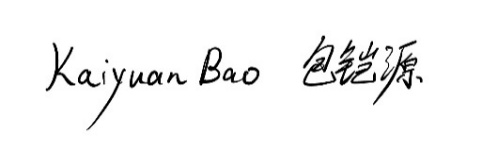 Kaiyuan Bao 包铠源